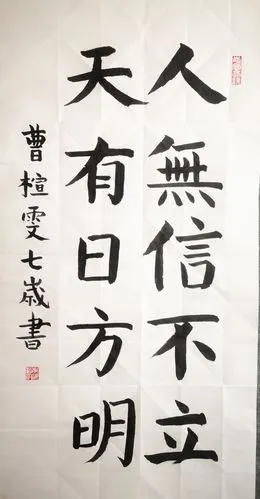 人無信不立
天有日方明
曹楦雯七歲書